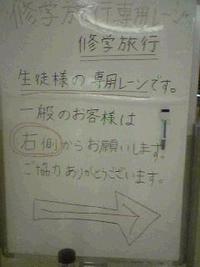 修学旅行専用レーン
修学旅行
生徒様の専用レーンです。
一般のお客様は
右側からお願いします。
ご協力ありがとうございます。